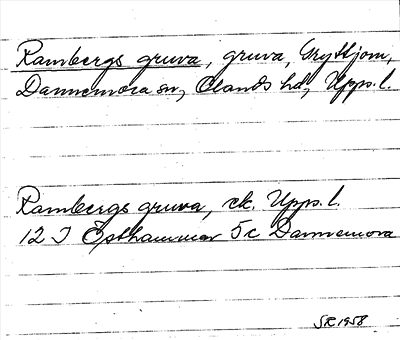 Rambergs gruva, gruva, Grytkjom,
Dannemora sn, Olands hd, Upps. l.
Rambergs gruva, ek. Upps. l.
12 I Östhammar 5c Dannemora
SR 1958